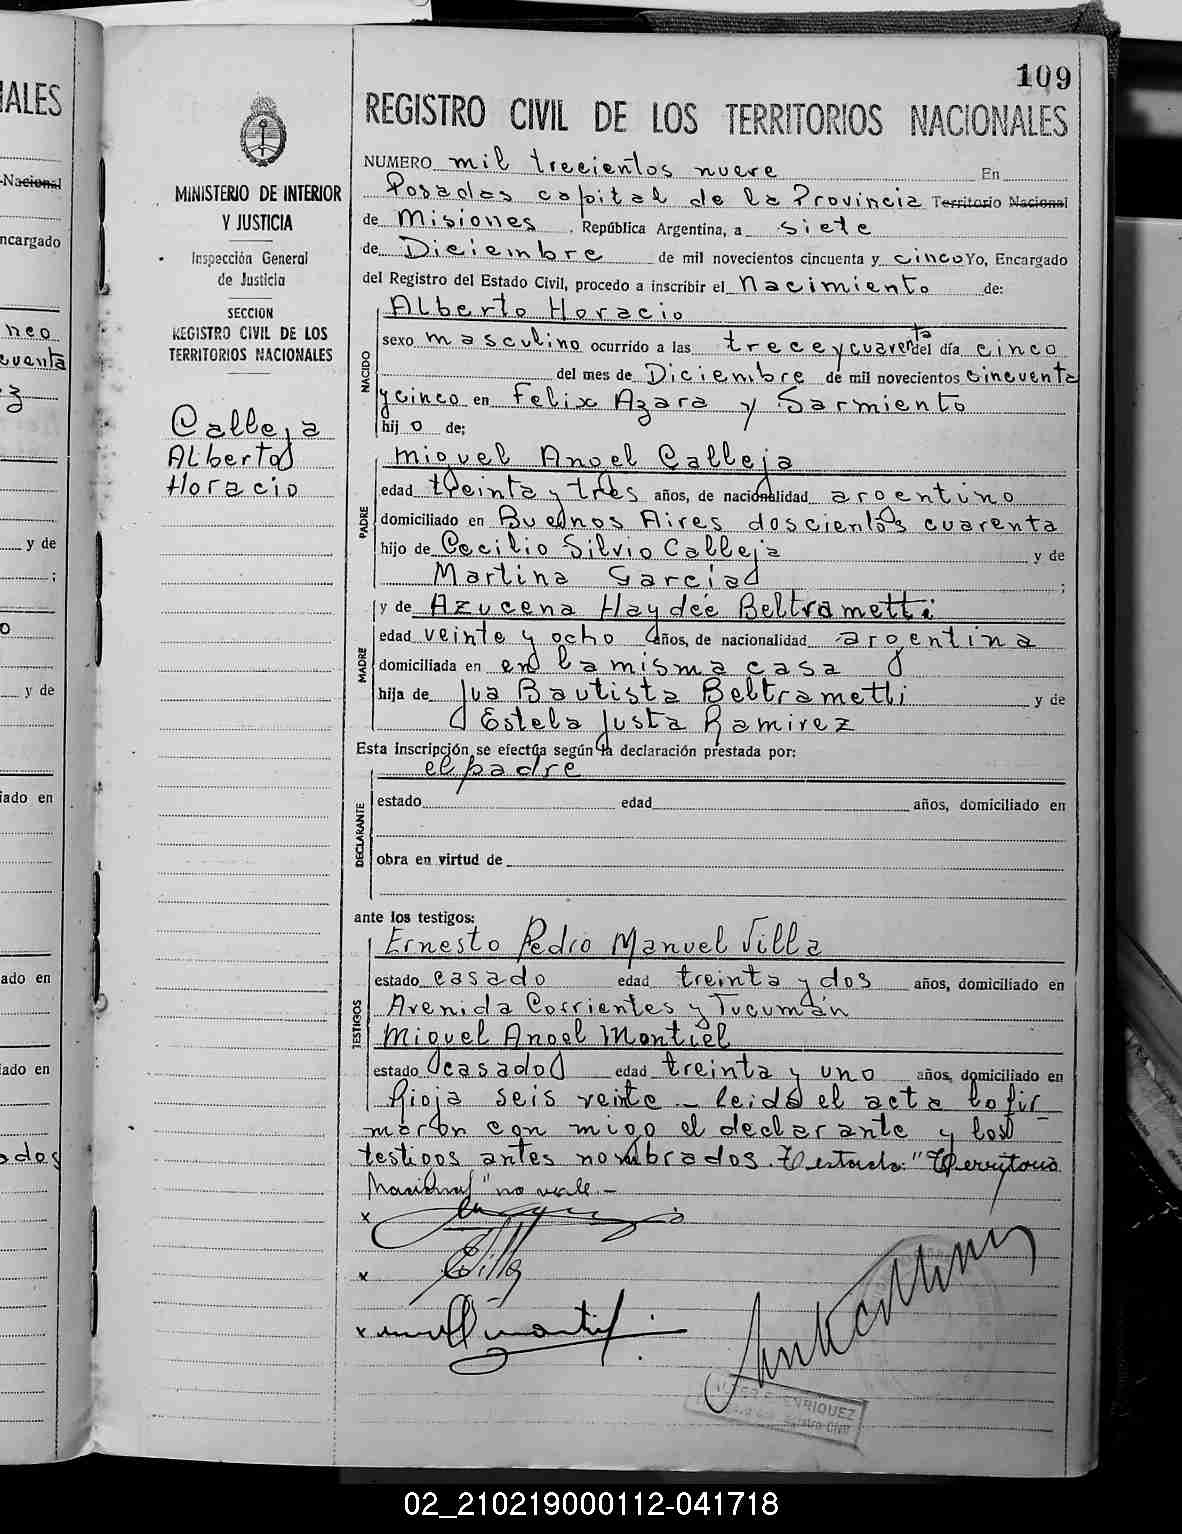 109
REGISTRO CIVIL DE LOS TERRITORIOS NACIONALES
MINISTERIO DE INTERIOR
Y JUSTICIA
Inspección General
de Justicia
SECCION
REGISTRO CIVIL DE LOS
TERRITORIOS NACIONALES
Calleja
Alberto
Horacio
NUMERO mil trecientos nueve En
Posadas capital de la Provincia Territorio Nacional
de Misiones. República Argentina, a siete
de Diciembre de mil novecientos cincuenta y cinco Yo, Encargado
del Registro del Estado Civil, procedo a inscribir el Nacimiento de:
NACIDO
Alberto Horacio
sexo masculino ocurrido a las trece y cuarenta del día cinco
del mes de Diciembre de mil novecientos cincuenta
y cinco en Felix Azara y Sarmiento
hijo de;
PADRE
Miguel Angel Calleja
edad treinta y tres años, de nacionalidad argentino
domiciliado en Buenos Aires doscientos cuarenta
hijo de Cecilio Silvio Calleja y de
Martina Garcia ;
MADRE
y de Azucena Haydée Beltrametti
edad veinte y ocho años, de nacionalidad argentina
domiciliada en en la misma casa
hija de Jua Bautista Beltrametti y de
Estela Justa Ramirez
Esta inscripción se efectúa según la declaración prestada por:
DECLARANTE
el padre
estado edad años, domiciliado en
obra en virtud de
ante los testigos:
TESTIGOS
Ernesto Pedro Manuel Villa
estado casado edad treinta y dos años, domiciliado en
Avenida Corrientes y Tucumán
Miguel Angel Montiel
estado casado edad treinta y uno años, domiciliado en
Rioja seis veinte - Leida el acta lo fir-
maron con migo el declarante y los
testigos antes nombrados. Testado: "Territorio
Nacional" no vale.-
x
x Villa
x
ENRIQUEZ
IALES
Nacional
encargado
y de
;
y de
iado en
ado en
iado en
02_210219000112-041718